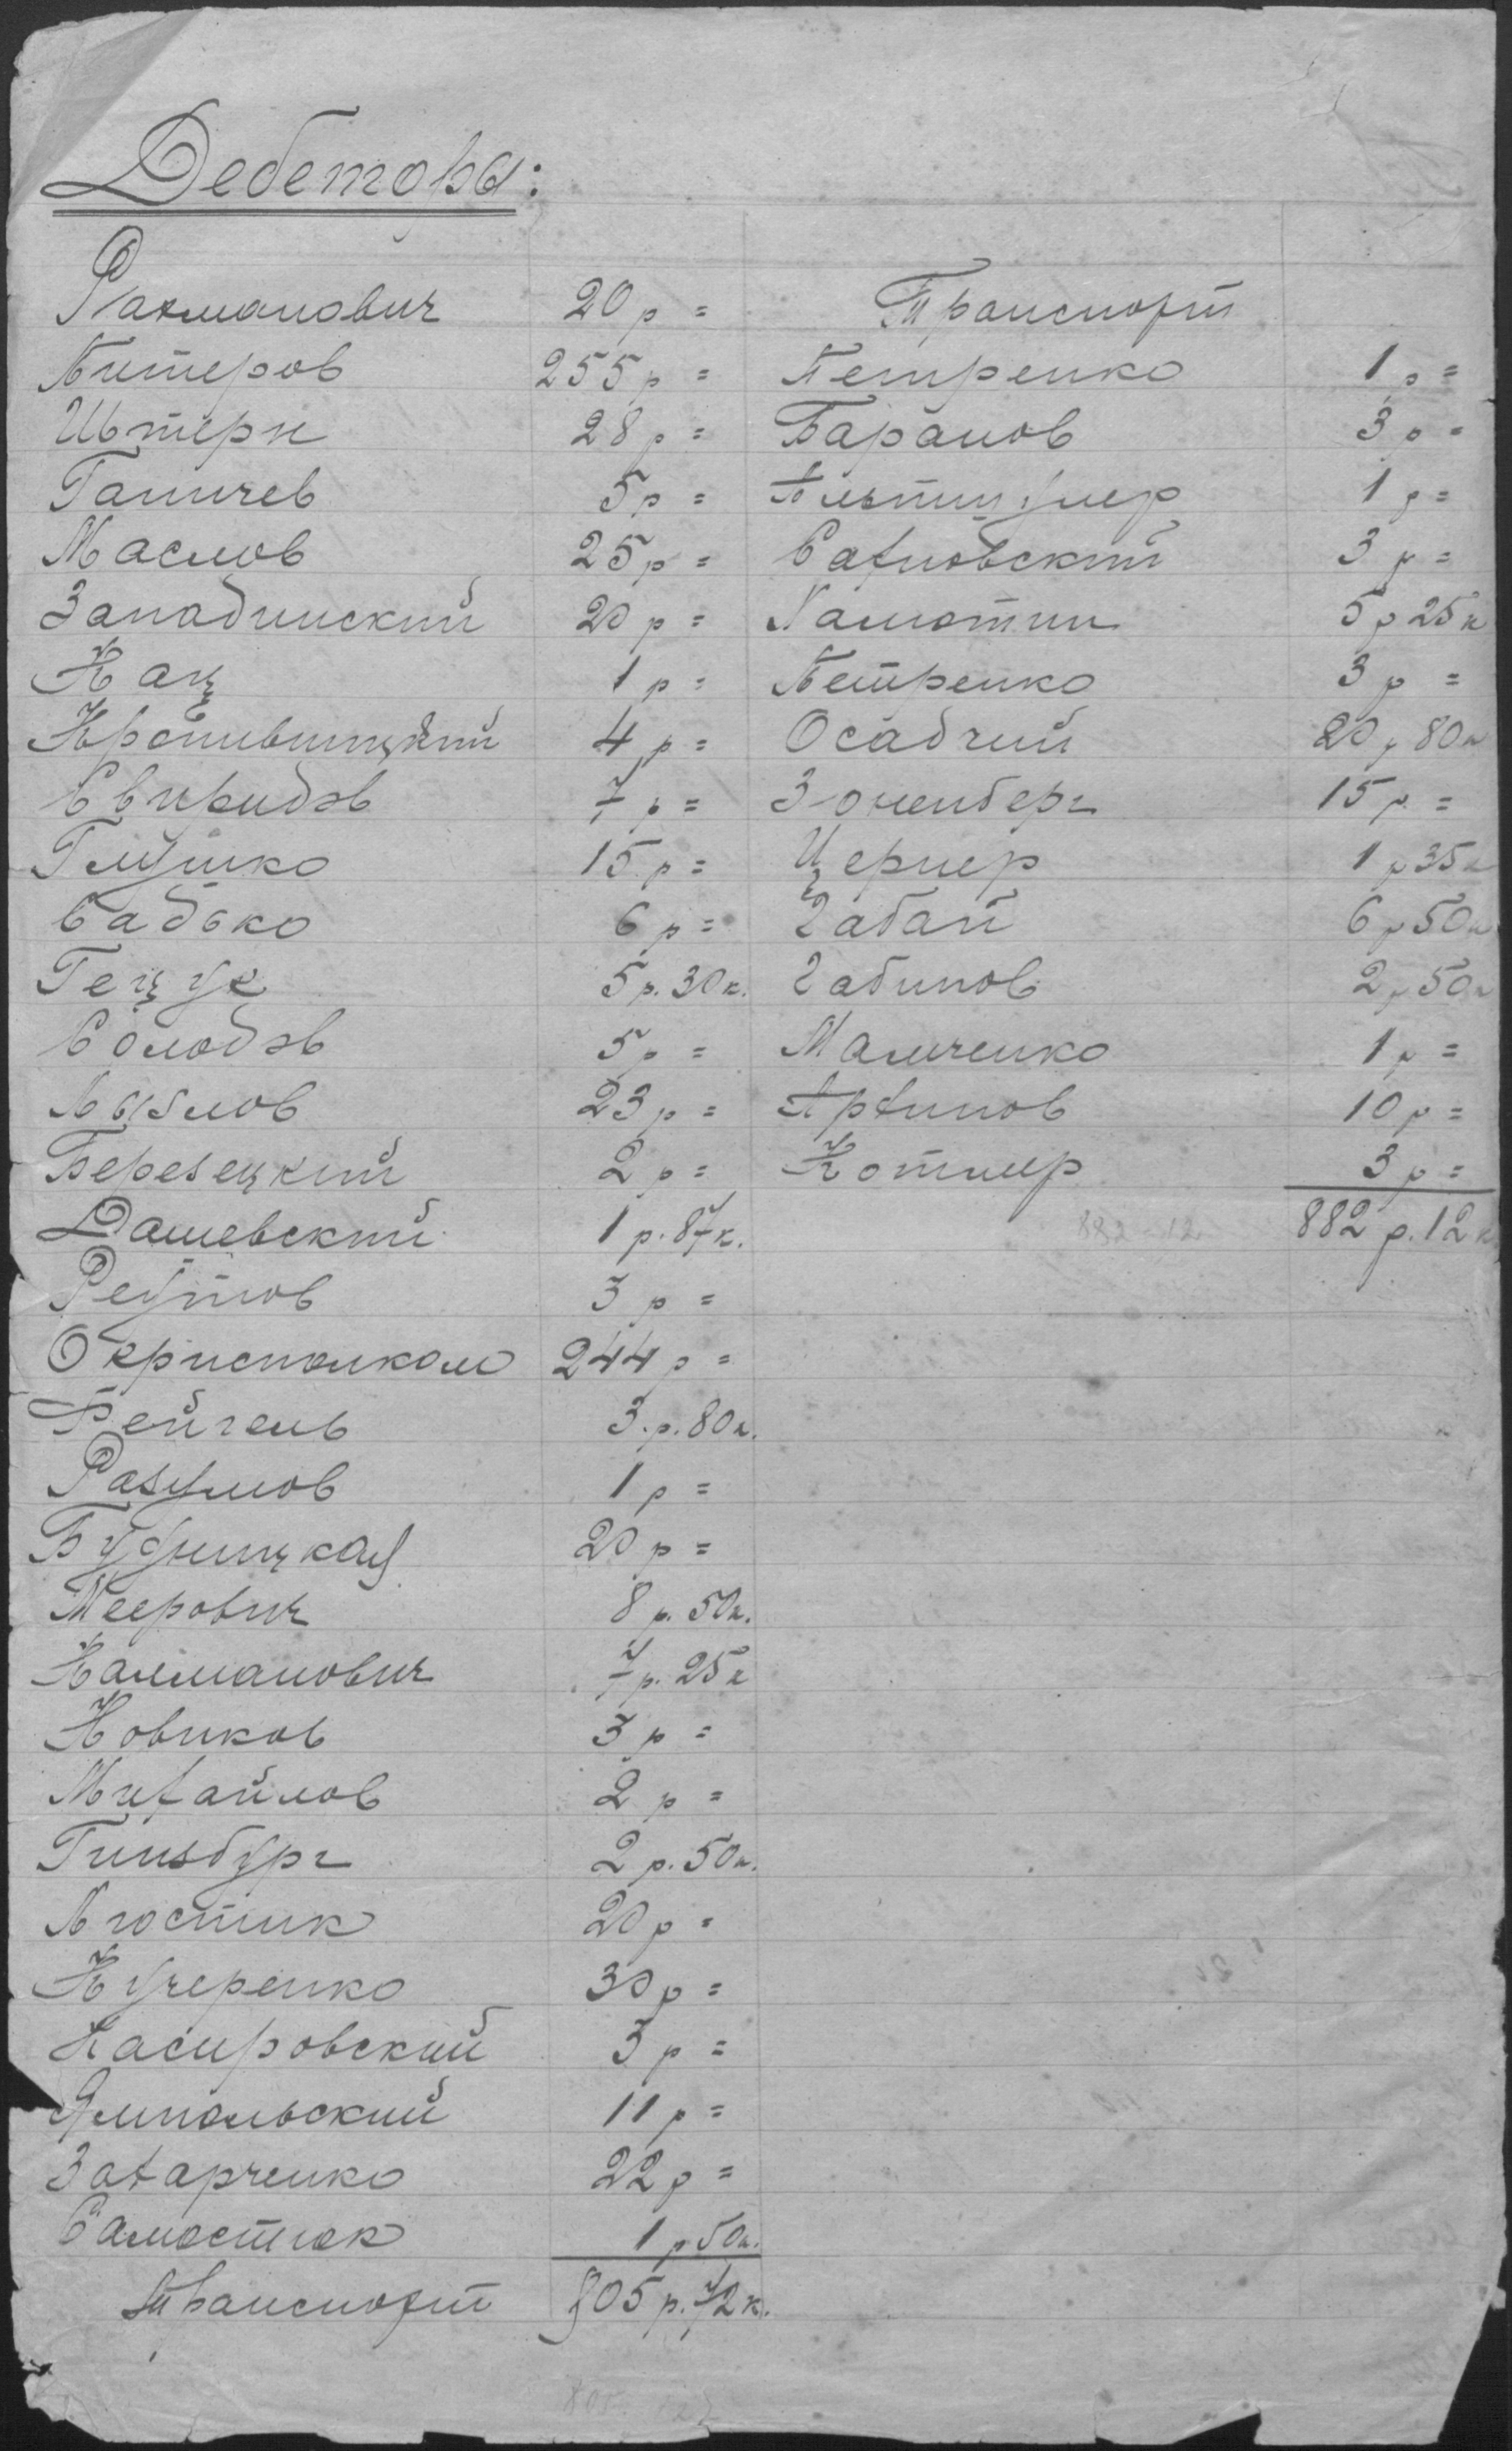 Дебеторы:
Рахманович 20 р =
Питеров 255 р =
Штерн 28 р =
Ганичев 5 р =
Маслов 25 р =
Западинский 20 р =
Кац 1 р =
Кропивницкий 4 р =
Свиридов 7 р =
Глушко 15 р =
Садько 6 р =
Гецук 5 р. 30 к.
Солодов 5 р =
Лызлов 23 р =
Березецкий 2 р =
Дашевский 1 р. 87 к.
Реутов 3 р =
Окрисполком 244 р =
Фейгель 3 р. 80 к.
Разумов 1 р =
20 р =
Меерович 8 р. 50 к.
Калманович 7 р. 25 к
Новиков 3 р =
Михайлов 2 р =
Гинзбург 2 р. 50 к.
Люстик 20 р =
Кучеренко 30 р =
Касировский 3 р =
Ямпольский 11 р =
Захарченко 22 р =
Самостюк 1 р 50 к.
Транспорт 805 р. 72 к.
Транспорт
Петренко 1 р =
Баранов 3 р =
1 р =
Сахновский 3 р =
Хамотин 5 р 25 к
Петренко 3 р =
Осадчий 20 р 80 к
Зоненберг 15 р =
Цернер 1 р 35 к
Габай 6 р 50 к
Габинов 2 р 50 к
Малченко 1 р =
Архипов 10 р =
Котляр 3 р =
882 - 12 882 р. 12 к